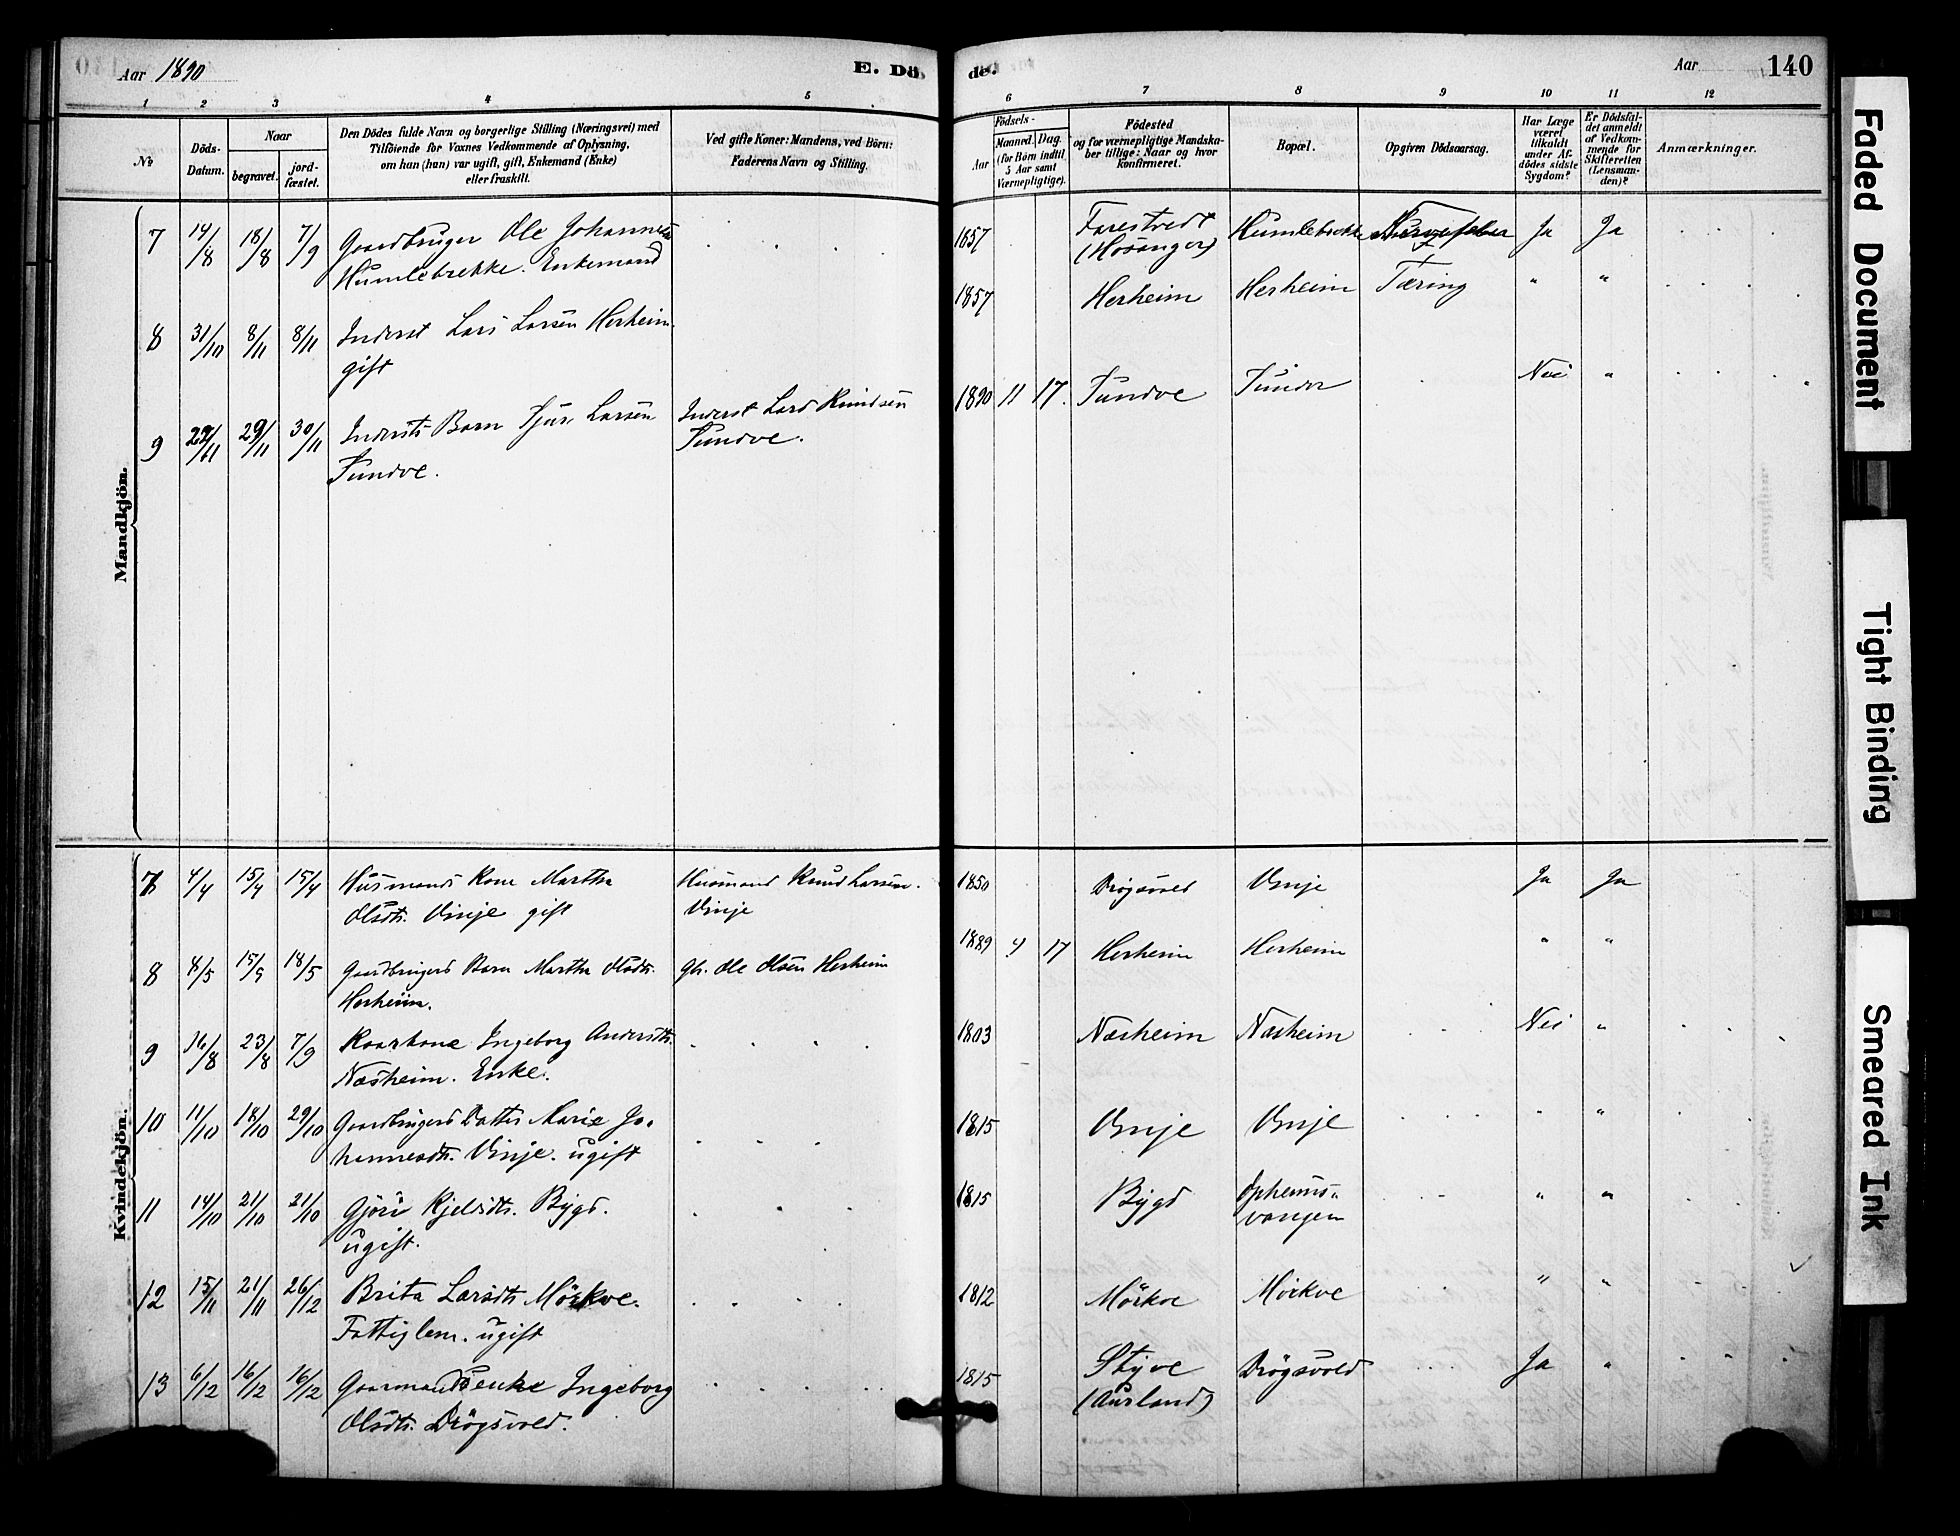 Aar 1890
E. Dö
de.
Aar
140
1 2 3 4 5 6 7 8 9 10 11 12
No
Döds-Datum.
Naar
begravet.
jord-fæstet.
Den Dödes fulde Navn og borgerlige Stilling (Næringsvei) med
Tilföiende for Voxnes Vedkommende af Oplysning,
om han (hun) var ugift, gift, Enkemand (Enke)
eller fraskilt.
Ved gifte Koner: Mandens, ved Börn:
Faderens Navn og Stilling.
Födsels-
Aar
Maaned.
Dag.
(for Börn indtil
5 Aar samt
Værnepligtige).
Födested
og for værnepligtige Mandska-
ber tillige: Naar og hvor
konfirmeret.
Bopæl.
Opgiven Dödsaarsag.
Har Læge
været
tilkaldt
under Af-
dödes sidste
Sygdom?
Er Dödsfal-
det anmeldt
af Vedkom-
mende for
Skifteretten
(Lensman-
den)?
Anmærkninger.
Mandkjön.
7 14/8 18/8 7/9 Gaardbruger Ole Johannes
Humlebrekke. Enkemand
1857 Farestvedt Humlebrekke Nervefeber Ja Ja
(Hosanger)
8 31/10 8/11 8/11 Inderst Lars Larsen Herheim.
gift
1857 Herheim Herheim Tæring " "
9 29/11 30/11 Indersts Barn Sjur Larsen
Tundve.
Inderst Lars Knudsen
Tundve.
1890 11 17. Tundve Nei "
Kvindekjön.
7 4/4 15/4 15/4 Husmands Kone Martha
Olsdtr. Vinje gift
Husmand Knud Larsen.
Vinje
1850 Drøgsvold Vinje Ja Ja
8 8/5 15/5 18/5 Gaardbrugers Barn Martha Olsdtr.
Herheim.
Gbr. Ole Olsen Herheim
1889 4 17 Herheim Herheim " "
9 16/8 23/8 7/9 Kaarkone Ingeborg Andersdtr.
Næsheim. Enke.
1803 Næsheim Næsheim Nei "
10 11/10 18/10 29/10 Gaardbrugers Datter Marie Jo-
hannesdtr. Vinje. ugift
1815 Vinje Vinje " "
11 14/10 21/10 21/10 Gjöri Kjelsdtr. Bygd.
ugift.
1815 Bygd Opheims-
vangen " "
12 15/11 21/11 26/12 Brita Larsdtr. Mörkve.
Fattiglem. ugift
1812 Mörkve Mörkve " "
13 6/12 16/12 16/12 Gaarmandsenke Ingeborg
Olsdtr. Drøgsvold.
1815 Styve Drøgsvold Ja "
(Aurland)
Faded Document
Tight Binding
Smeared Ink